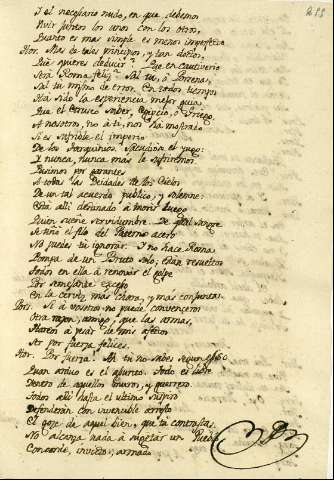 Y el necesario nudo, en que debemos
Vivir juntos los unos con los otros,
Quanto es mas simple es menos imperfecto
Hor. Mas de tales principios, y tan doctor,
Que quieres deducir? Que en cautiverio
Será Roma feliz? Sal tu, ò Porsena,
Sal tu mismo de error. En todos tiempos
Ha sido la esperiencia mejor guia
Que el Etrusco saber, Egipcio, ò Griego.
A nosotros, no à ti, nos ha mostrado
Si es sufrible el imperio
De los Tarquinos. Sacudióse el yugo:
Y nunca, nunca mas le sufriremos.
Pusimos por garantes
A todas las Deidades de los Cielos
De un tal acuerdo publico, y solemne:
Está alli destinado à morir luego
Quien sueñe servidumbre. De igual sangre
Se tiñó el filo del Paterno acero
No puedes tu ignorar. Y no hace Roma
Pompa de un Bruto solo; están resueltos
Todos en ella à renovar el golpe
Por semejante excepto
En la cerviz mas chara, y mas conjunta.
Pors. Si à vosotros no puede convenceros
Otra razon, amigo, que las armas,
Haréos à pesar de mis afectos
Ser por fuerza felices.
Hor. Por fuerza! Ah tu no sabes segun esso
Quan arduo es el assunto. Todo es libre
Genero de aquellos muros, y guerrero.
Todos alli hasta el ultimo suspiro
Defenderán con invencible arrojo
El goze de aquel bien, que tu contrastas.
No alcanza nada à sugetar un Pueblo
Concorde, invicto, armado